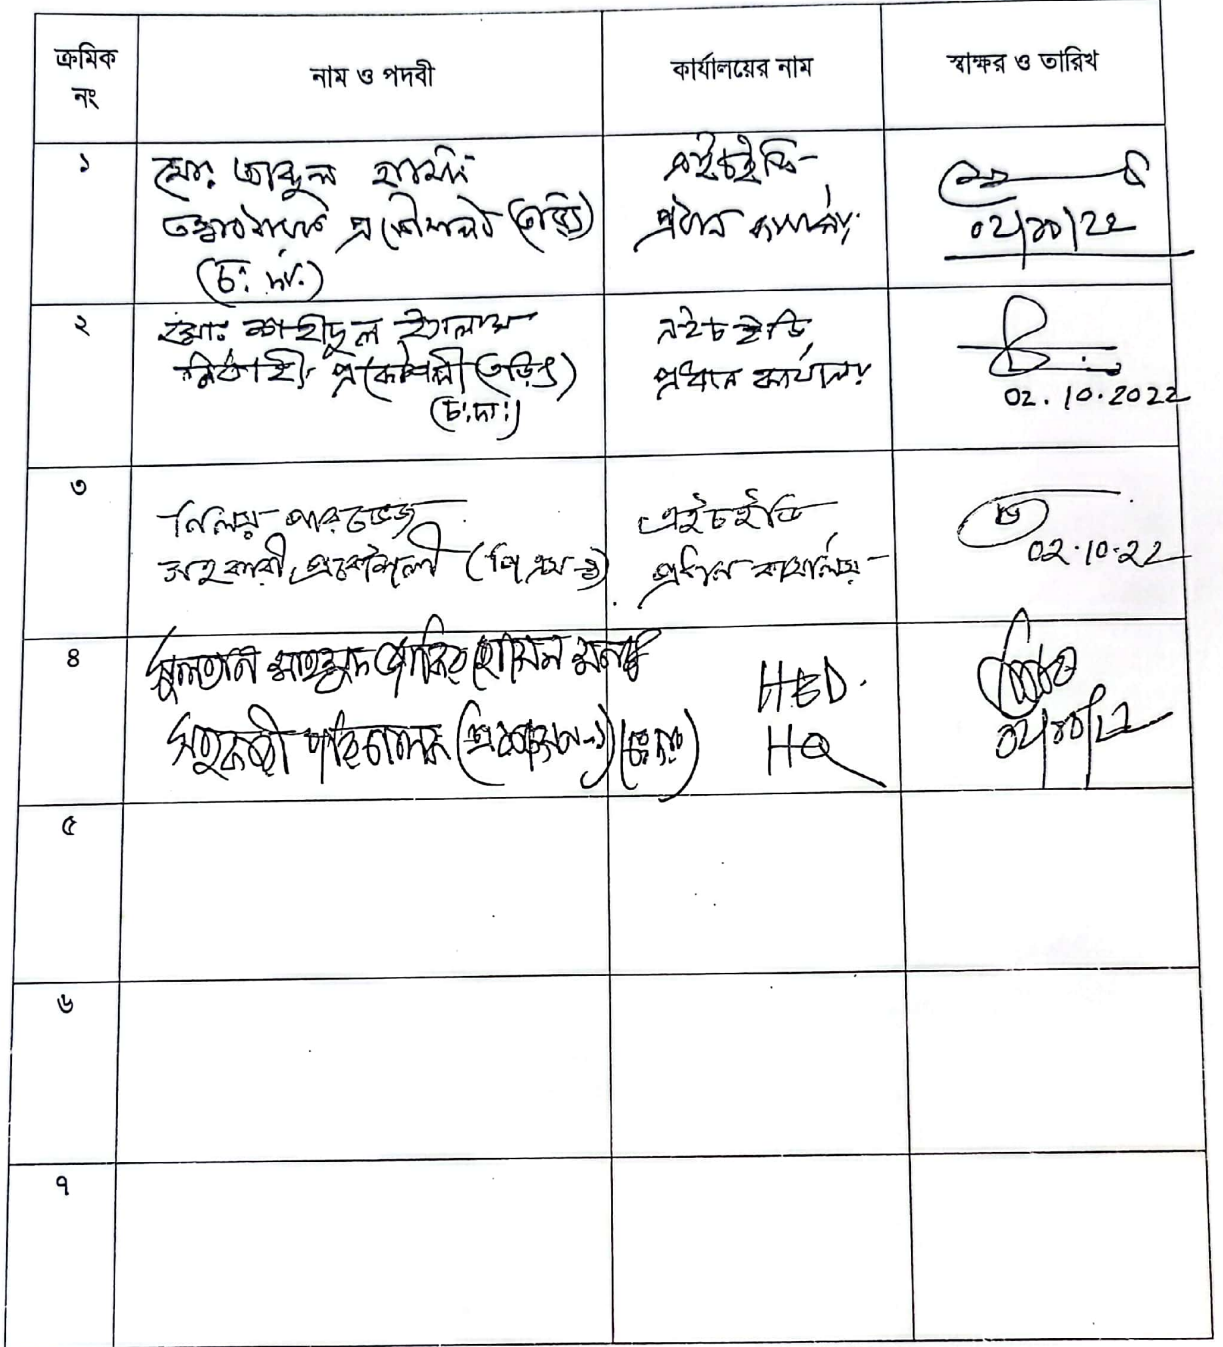 ক্রমিক নং
নাম ও পদবী
কার্যালয়ের নাম
স্বাক্ষর ও তারিখ
১
মো: আবুল হাসান
প্রকৌশলী (তড়িৎ)
(চ: দা:)
এইচইডি
প্রধান কার্যালয়
০২/১০/২২
২
মো: শহীদুল ইসলাম
নির্বাহী প্রকৌশলী (তড়িৎ)
(চ:দা:)
এইচইডি
প্রধান কার্যালয়
02.10.2022
৩
নিলয় পারভেজ
সহকারী প্রকৌশলী
এইচইডি
প্রধান কার্যালয়
02.10.22
৪
সুলতান মাহমুদ হোসেন
সহকারী পরিচালক (প্রশাসন-১) (চ:দা:)
HED.
HQ
০২/১০/২২
৫
৬
৭